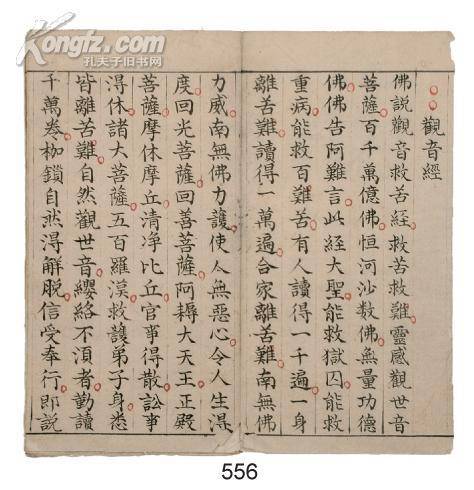 Kongfz.com
孔夫子旧书网
觀音經
佛說觀音救苦経救苦救難靈感觀世音
菩薩百千萬億佛恒河沙数佛無量功德
佛佛告阿難言此經大聖能救獄囚能救
重病能救百難苦有人讀得一千遍一身
離苦難讀得一萬遍合家離苦難南無佛
力威南無佛力護使人無惡心令人生得
度回光菩薩回善菩薩阿耨大天王正殿
菩薩摩休摩丘清净比丘官事得散訟事
淂休諸大菩薩五百羅漢救護弟子身悉
皆離苦難自然觀世音纓絡不湏者勤讀
千萬卷枷鎖自然淂解脫信受奉行即說
556